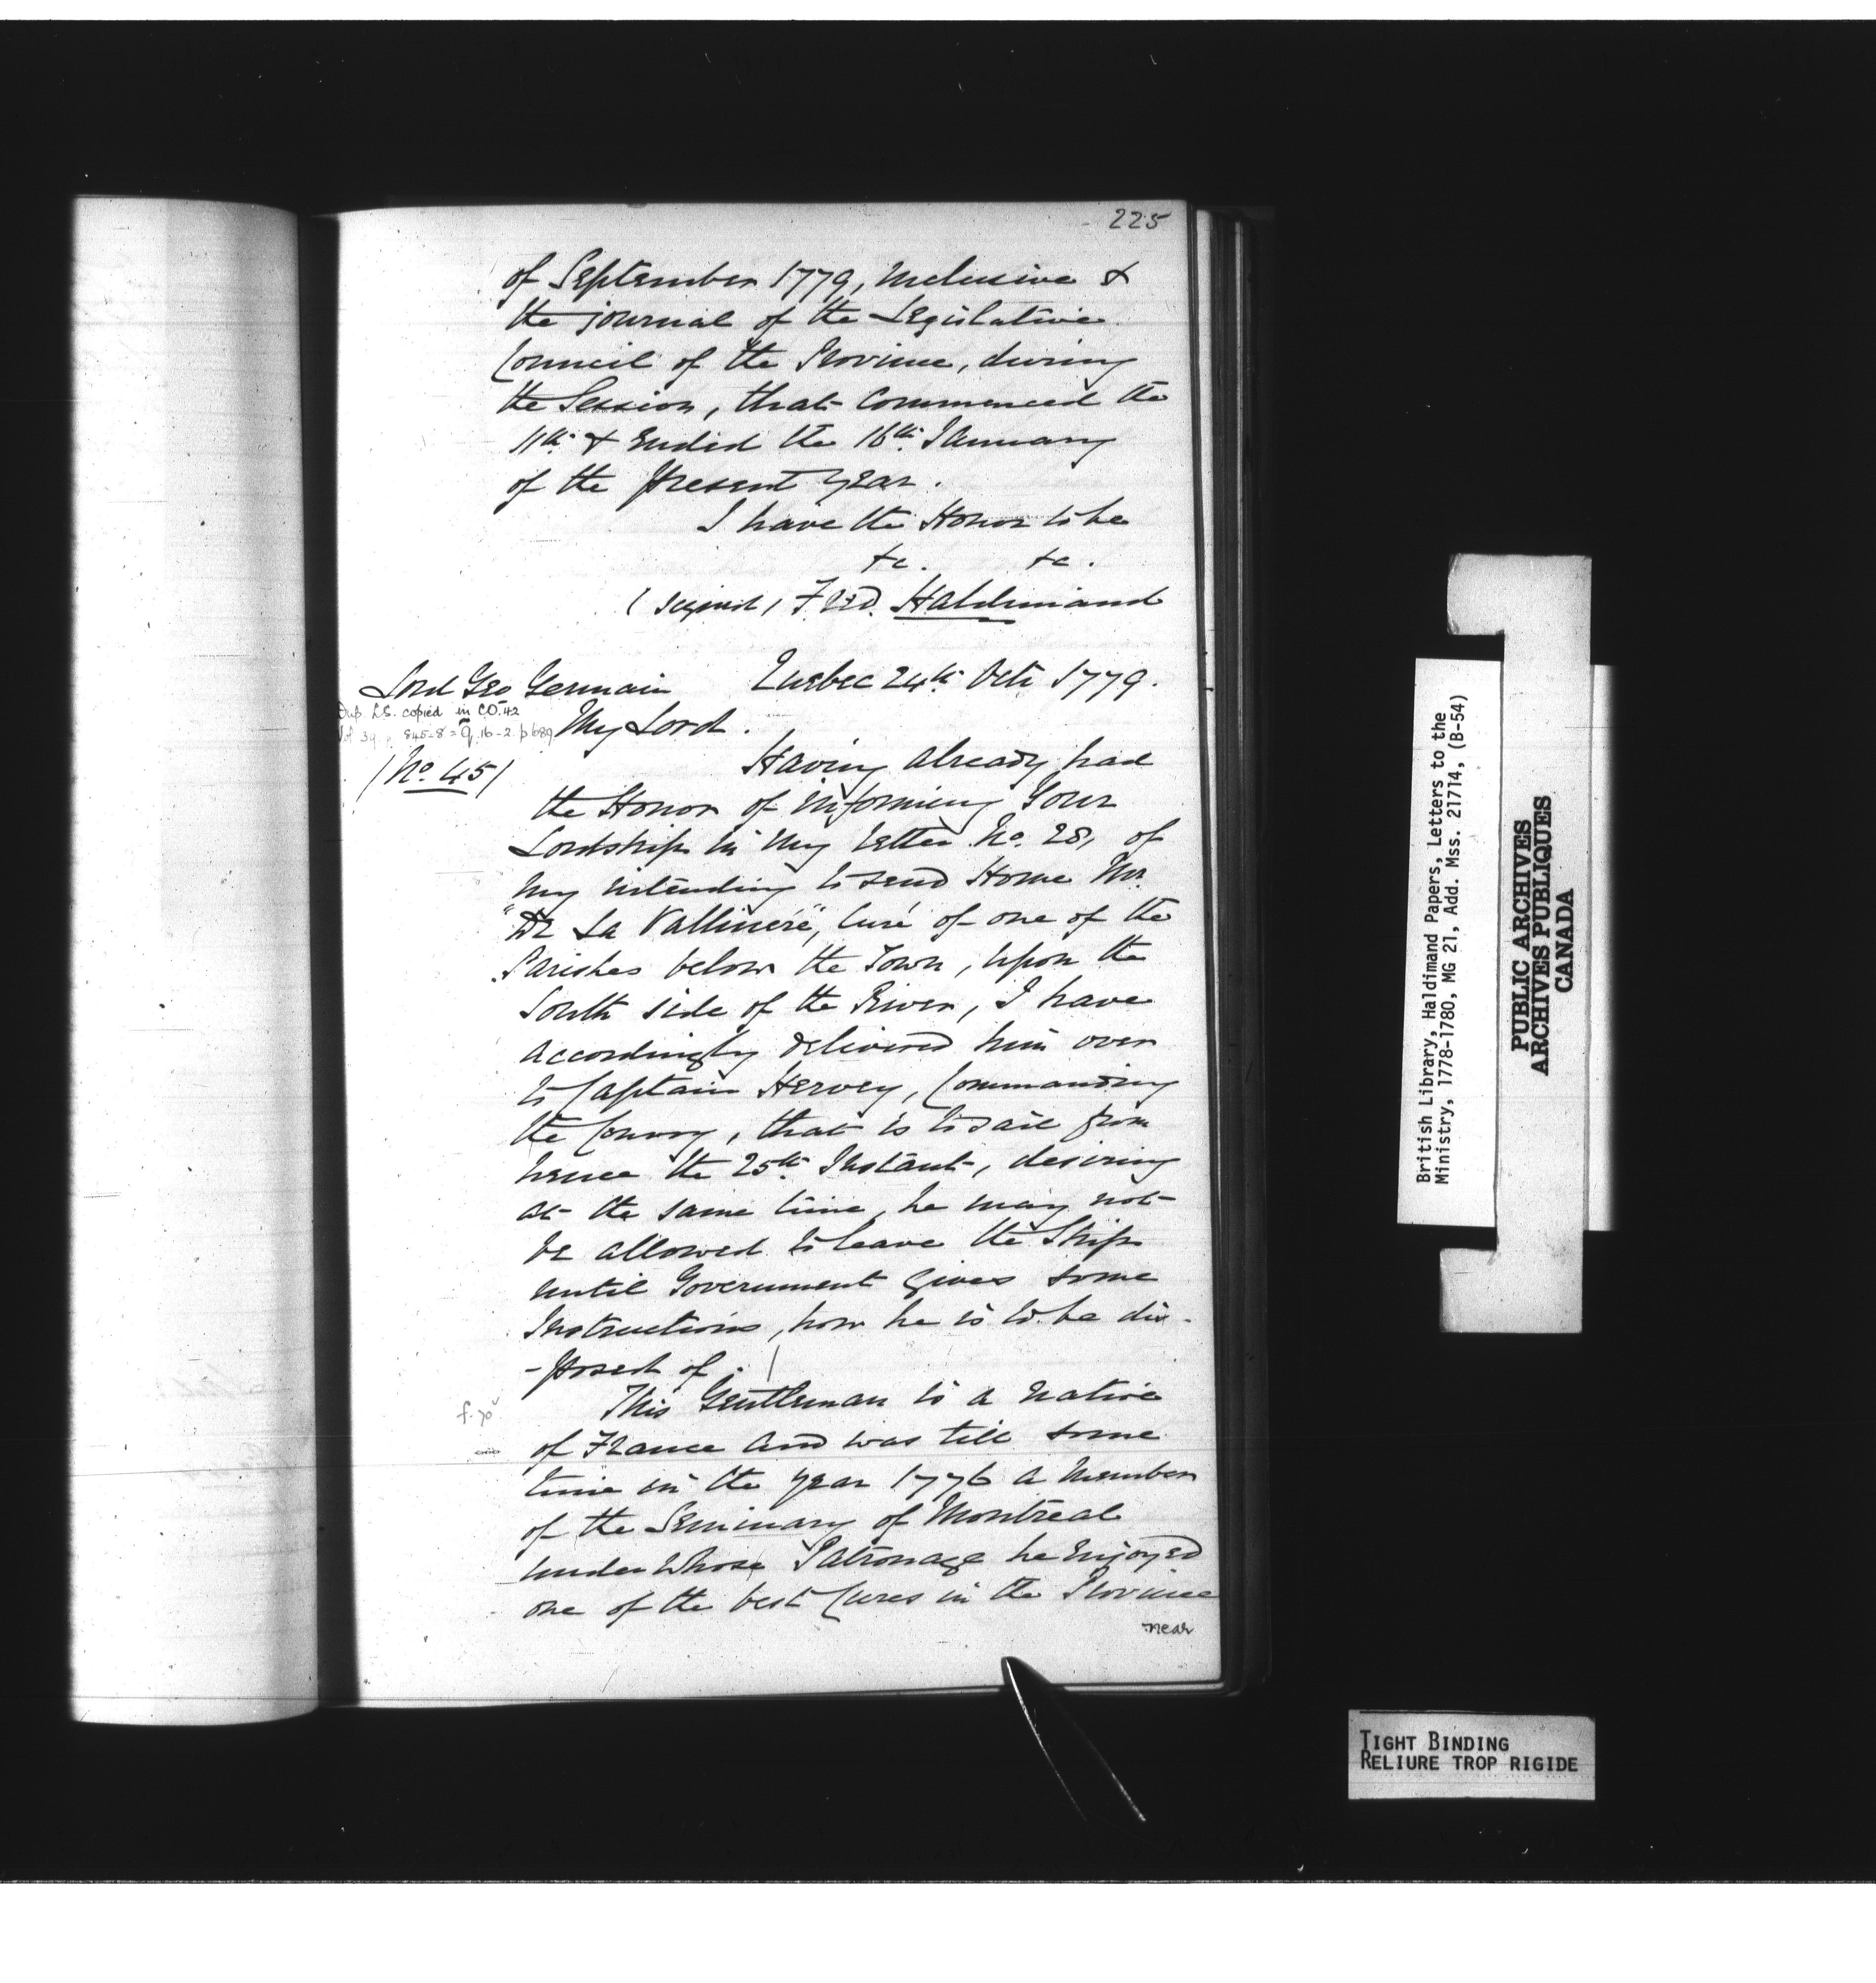 225
of September 1779, inclusive &
the journal of the Legislative
Council of the Province, during
the Session, that commenced the
11th. & Ended the 16th. January
of the present year.
I have the Honor to be
&c. &c.
(signed) Fred. Haldimand
Lord Geo Germain Quebec 24th. Octr 1779.
Dup. LS. copied in CO. 42
845-8 = Q. 16-2. p 689
My Lord.
/No. 45/
Having already had
the Honor of informing Your
Lordship in my Letter No. 28, of
my intending to send Home Mr.
"De La Vallinere", Curé of one of the
Parishes below the Town, upon the
South side of the River, I have
accordingly delivered him over
to Captain Hervey, Commanding
the Convoy, that is to sail from
hence the 25th. Instant, desiring
at the same time, he may not
be allowed to leave the Ship
until Government gives some
Instructions, how he is to be dis-
-posed of. /
f. 70v
This Gentleman is a native
of France and was till some
time in the year 1776 a Member
of the Seminary of Montreal
under whose Patronage he Enjoyed
one of the best Cures in the Province
near
British Library, Haldimand Papers, Letters to the
Ministry, 1778-1780, MG 21, Add. Mss. 21714, (B-54)
PUBLIC ARCHIVES
ARCHIVES PUBLIQUES
CANADA
TIGHT BINDING
RELIURE TROP RIGIDE